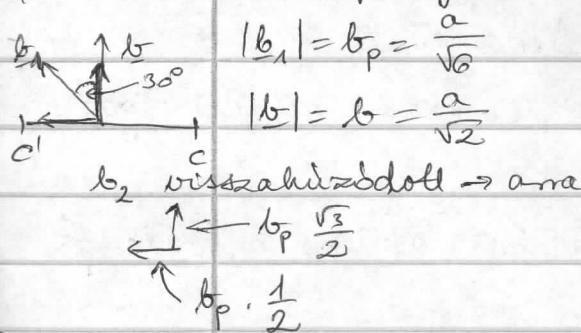 b₁ b 30° |b₁| = b_p = a/√6
|b| = b = a/√2
C' C
b₂ visszahúzódott → arra
b_p √3/2
b_p · 1/2